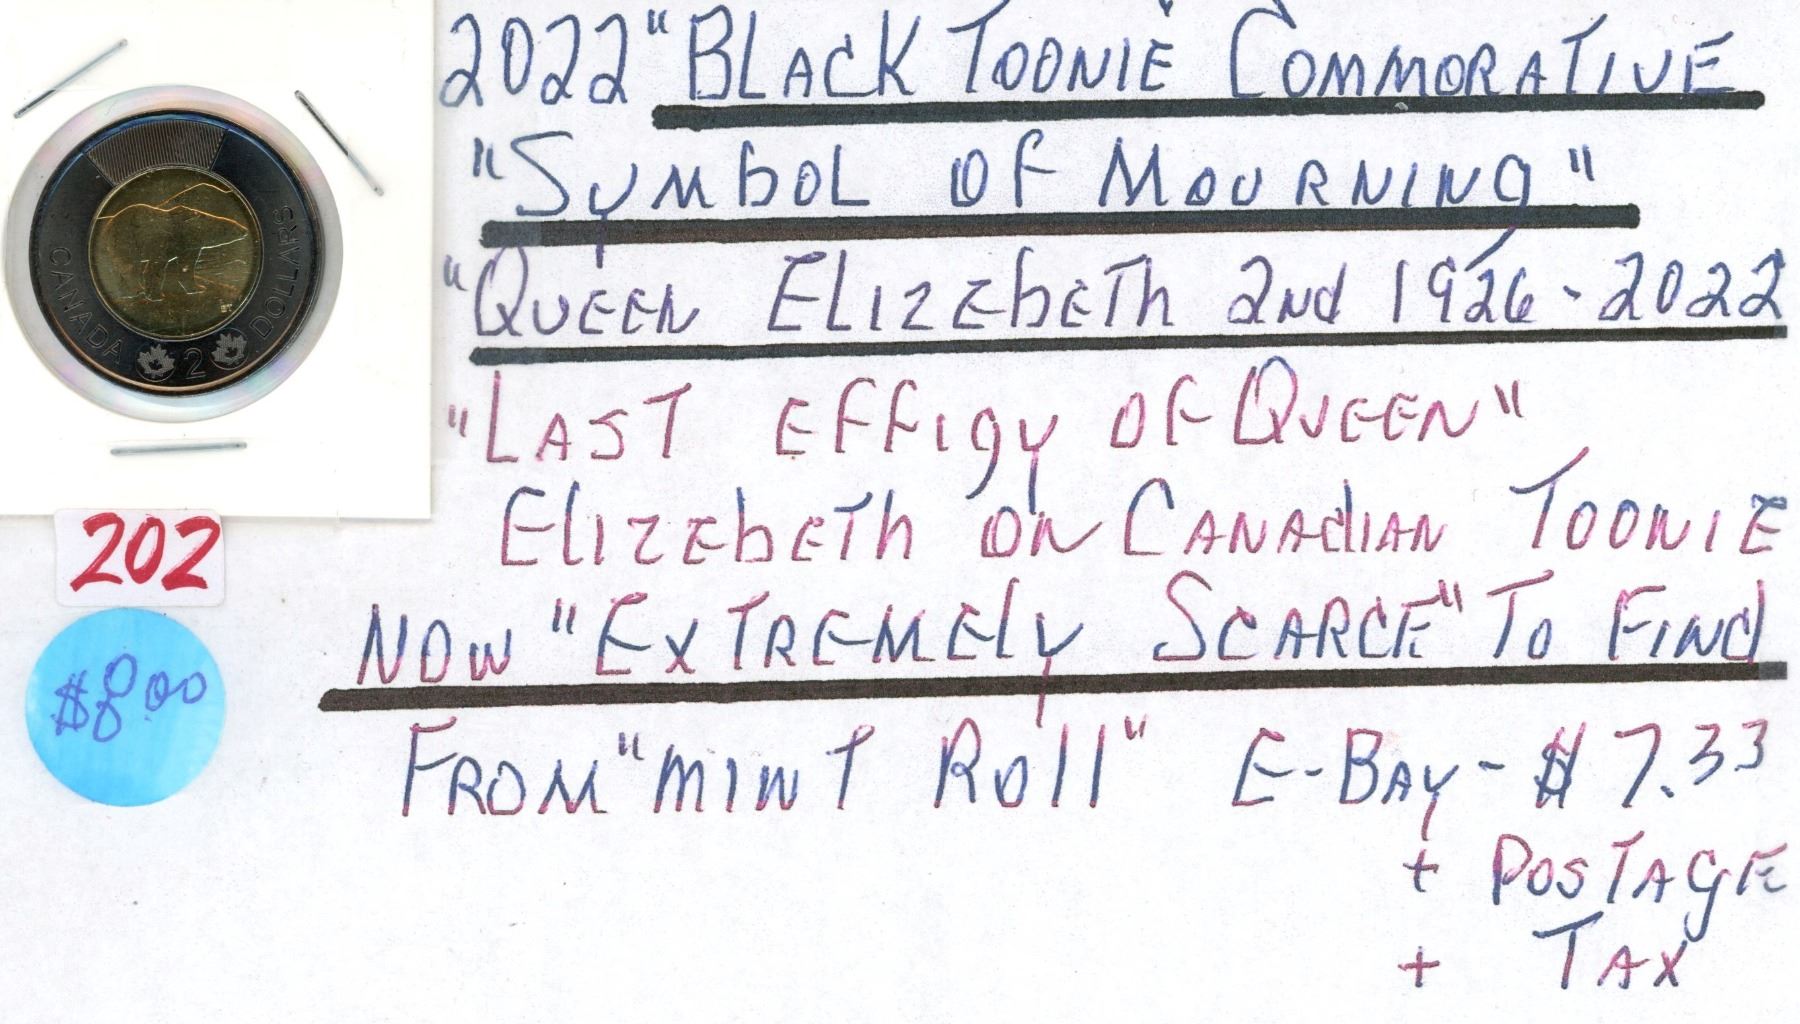 2022 "BLACK TOONIE" COMMORATIVE
"SYMBOL OF MOURNING"
"QUEEN ELIZEBETH 2ND 1926-2022
"LAST EFFIGY OF QUEEN"
ELIZEBETH ON CANADIAN TOONIE
NOW "EXTREMELY SCARCE" TO FIND
FROM "MINT ROLL" E-BAY - $7.33
+ POSTAGE
+ TAX
CANADA 2 DOLLARS
202
$8.00